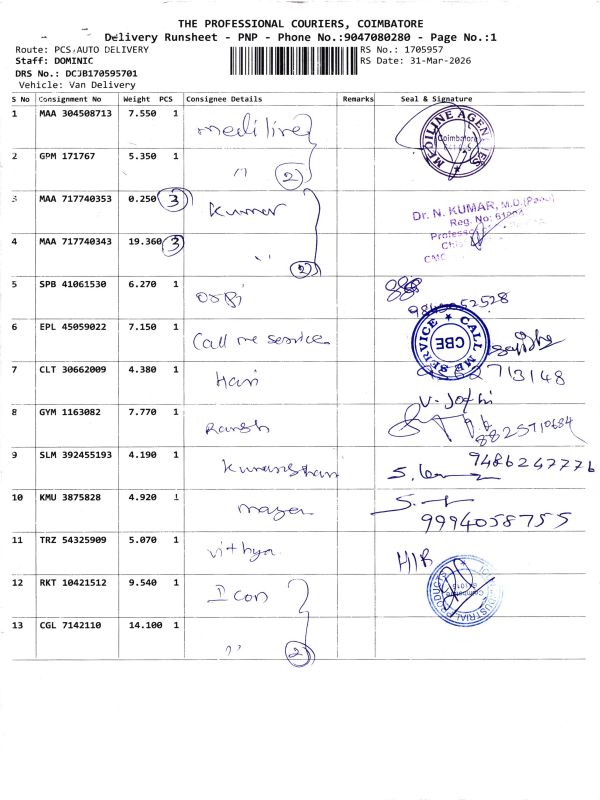 THE PROFESSIONAL COURIERS, COIMBATORE
Delivery Runsheet - PNP - Phone No.:9047080280 - Page No.:1
Route: PCS,AUTO DELIVERY
RS No.: 1705957
Staff: DOMINIC
RS Date: 31-Mar-2026
DRS No.: DCJB170595701
Vehicle: Van Delivery
S No Consignment No Weight PCS Consignee Details Remarks Seal & Signature
1 MAA 304508713 7.550 1 mediline MEDILINE AGENCIES Coimbatore
2 GPM 171767 5.350 1 " 2
3 MAA 717740353 0.250 3 Kumar Dr. N. KUMAR, M.D.
Reg. No:
4 MAA 717740343 19.360 3 " 2
5 SPB 41061530 6.270 1
6 EPL 45059022 7.150 1 Call me service CALL ME SERVICE CBE
7 CLT 30662009 4.380 1 Hari 713148
8 GYM 1163082 7.770 1 V. Jothi
8825710684
9 SLM 392455193 4.190 1 9486247776
10 KMU 3875828 4.920 1
9994058755
11 TRZ 54325909 5.070 1 Vithya
12 RKT 10421512 9.540 1 Icon INDUSTRIAL PRODUCTS
13 CGL 7142110 14.100 1 " 2